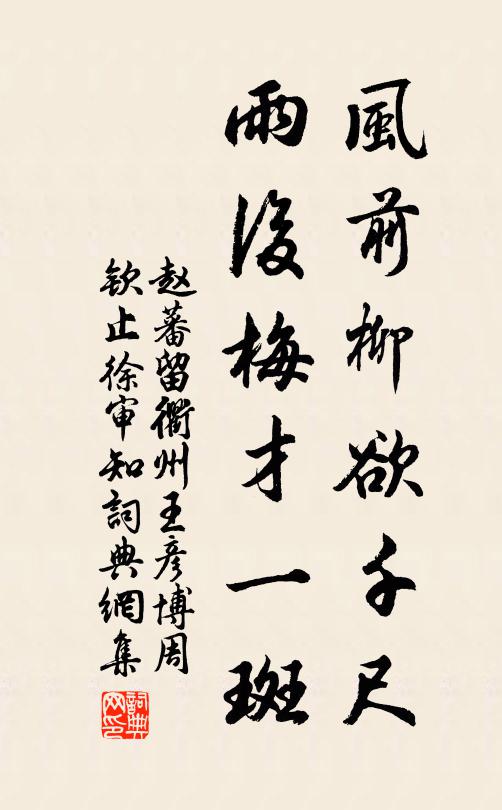 風前柳欲千尺
雨後梅才一斑
赵蕃留衢州王彦博周
钦止徐审知詞典網集
詞典
网印